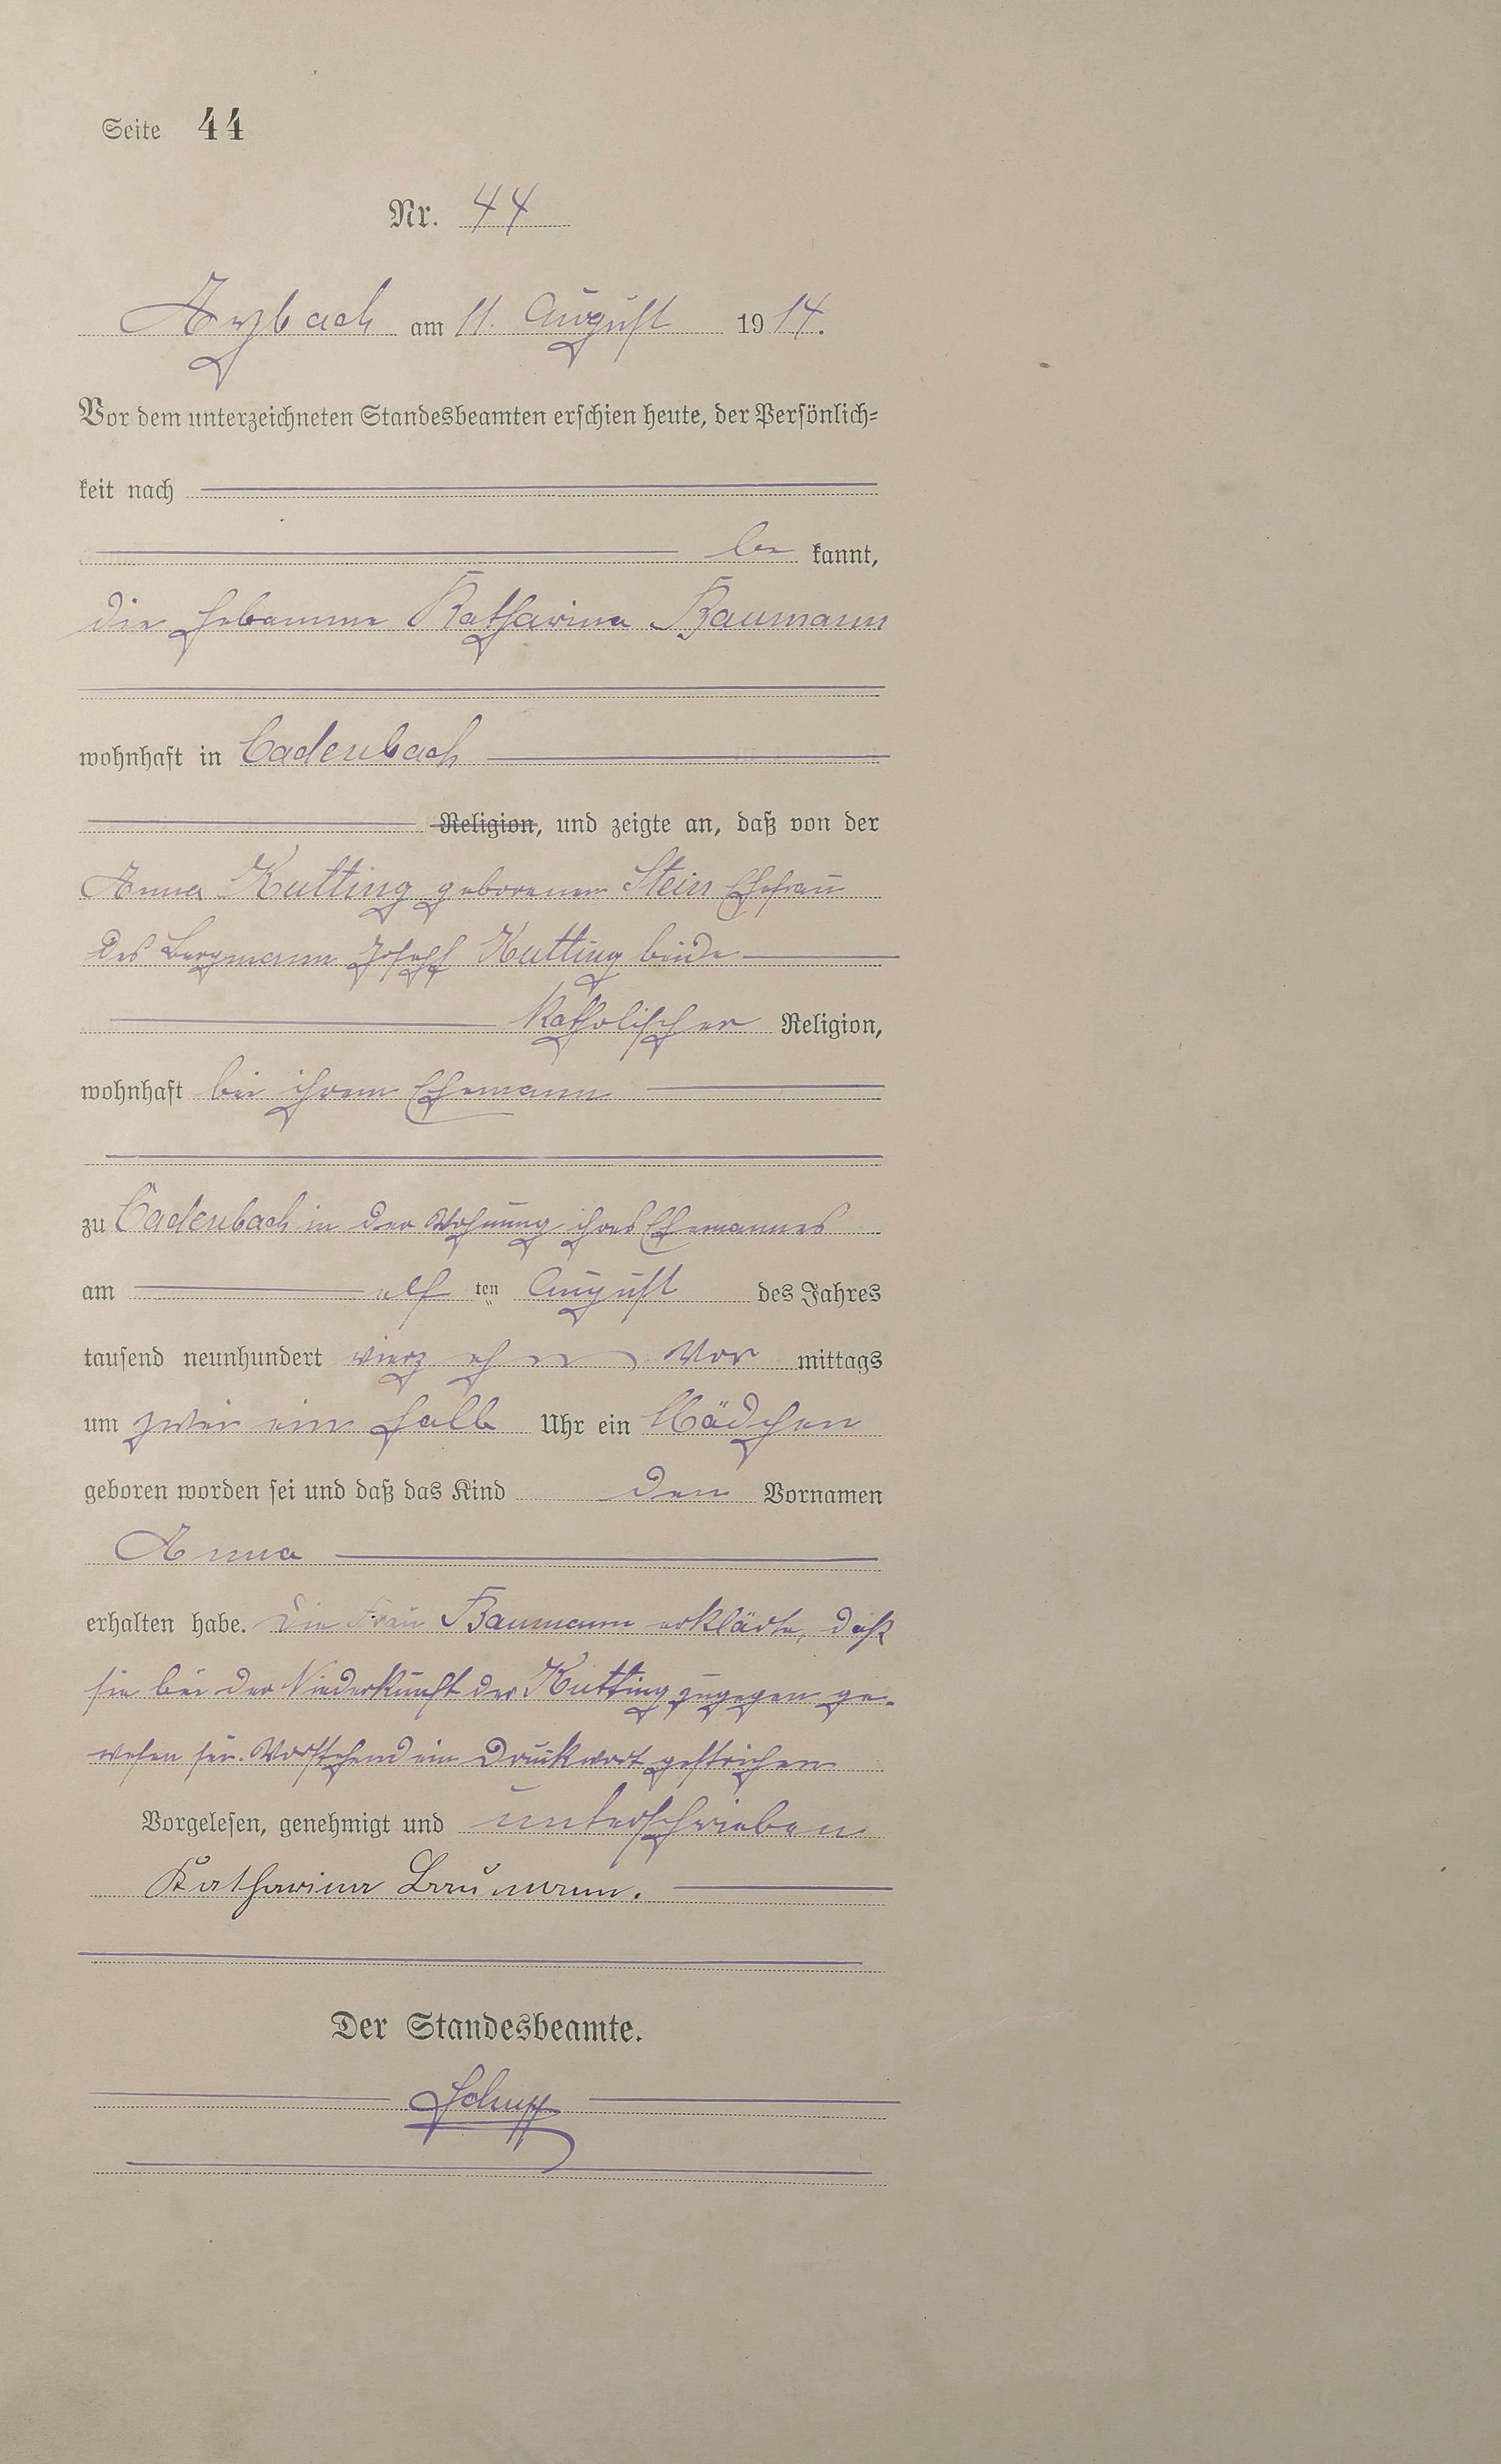 Seite 44
Nr. 44
Arzbach am 11. August 1914.
Vor dem unterzeichneten Standesbeamten erschien heute, der Persönlich=
keit nach
be kannt,
die Hebamme Katharina Baumann
wohnhaft in Cadenbach
Religion, und zeigte an, daß von der
Anna Kutting geborenen Stein Ehefrau
des Bergmann Joseph Kutting beide
katholischer Religion,
wohnhaft bei ihrem Ehemann
zu Cadenbach in der Wohnung ihres Ehemannes
am elf ten August des Jahres
tausend neunhundert vierzehn Vor mittags
um zwei ein halb Uhr ein Mädchen
geboren worden sei und daß das Kind den Vornamen
Anna
erhalten habe. Die Frau Baumann erklärte, daß
sie bei der Niederkunft der Kutting zugegen ge-
wesen sei. Vorstehend ein Druckwort gestrichen
Vorgelesen, genehmigt und unterschrieben
Katharina Baumann.
Der Standesbeamte.
Schupp